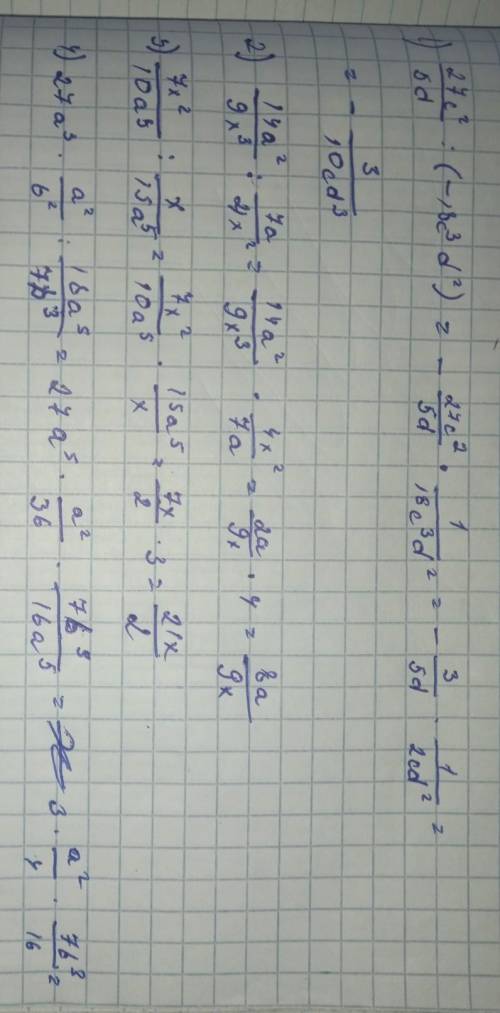 1) 27c²/5d : (-18c³d²) = - 27c²/5d · 1/18c³d² = - 3/5d · 1/2cd² =
= - 3/10cd³
2) 14a²/9x³ : 7a/4x² = 14a²/9x³ · 4x²/7a = 2a/9x · 4 = 8a/9x
3) 7x²/10a⁵ : x/15a⁵ = 7x²/10a⁵ · 15a⁵/x = 7x/2 · 3 = 21x/2
4) 27a⁵ · a²/b² : 16a⁵/7b³ = 27a⁵ · a²/36 · 7b³/16a⁵ = 3 · a²/4 · 7b³/16 =